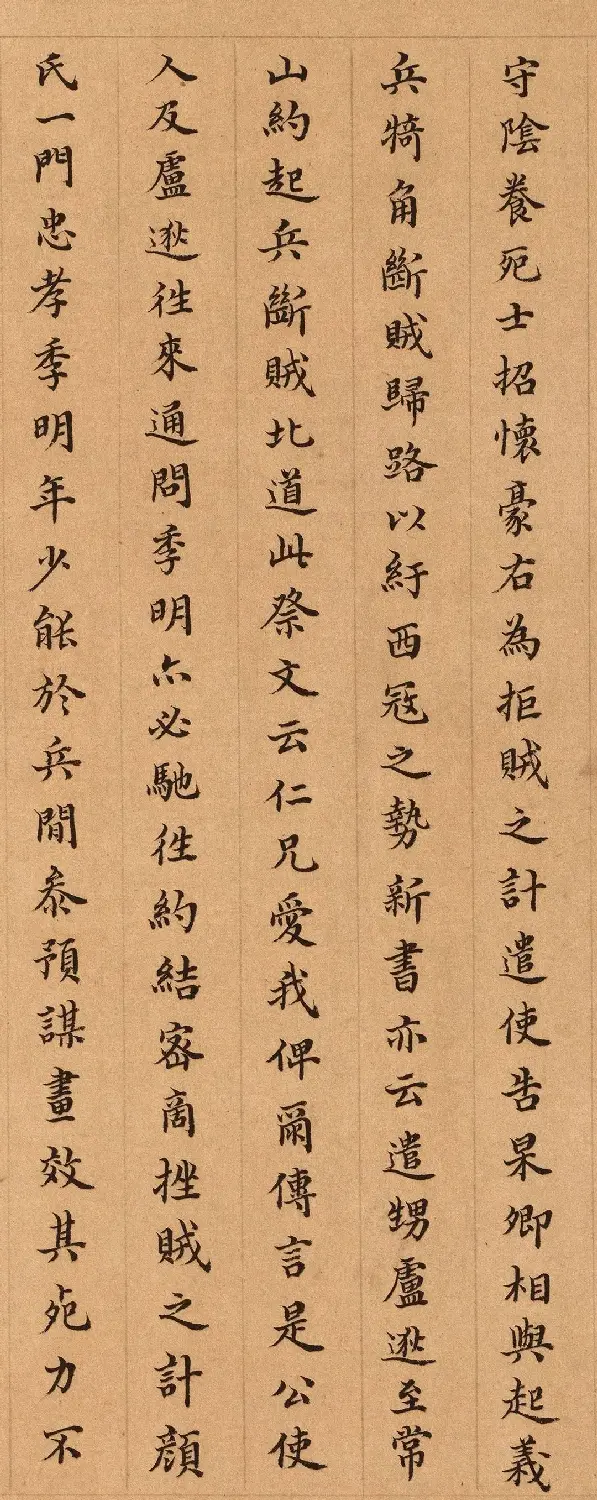 守隂養死士招懷豪右為拒賊之計遣使告杲卿相與起義
兵犄角斷賊歸路以紓西寇之勢新書亦云遣甥盧逖至常
山約起兵斷賊北道此祭文云仁兄愛我俾爾傳言是公使
人及盧逖往來通問季明亦必馳往約結密商挫賊之計顏
氏一門忠孝季明年少能於兵間參預謀畫效其死力不